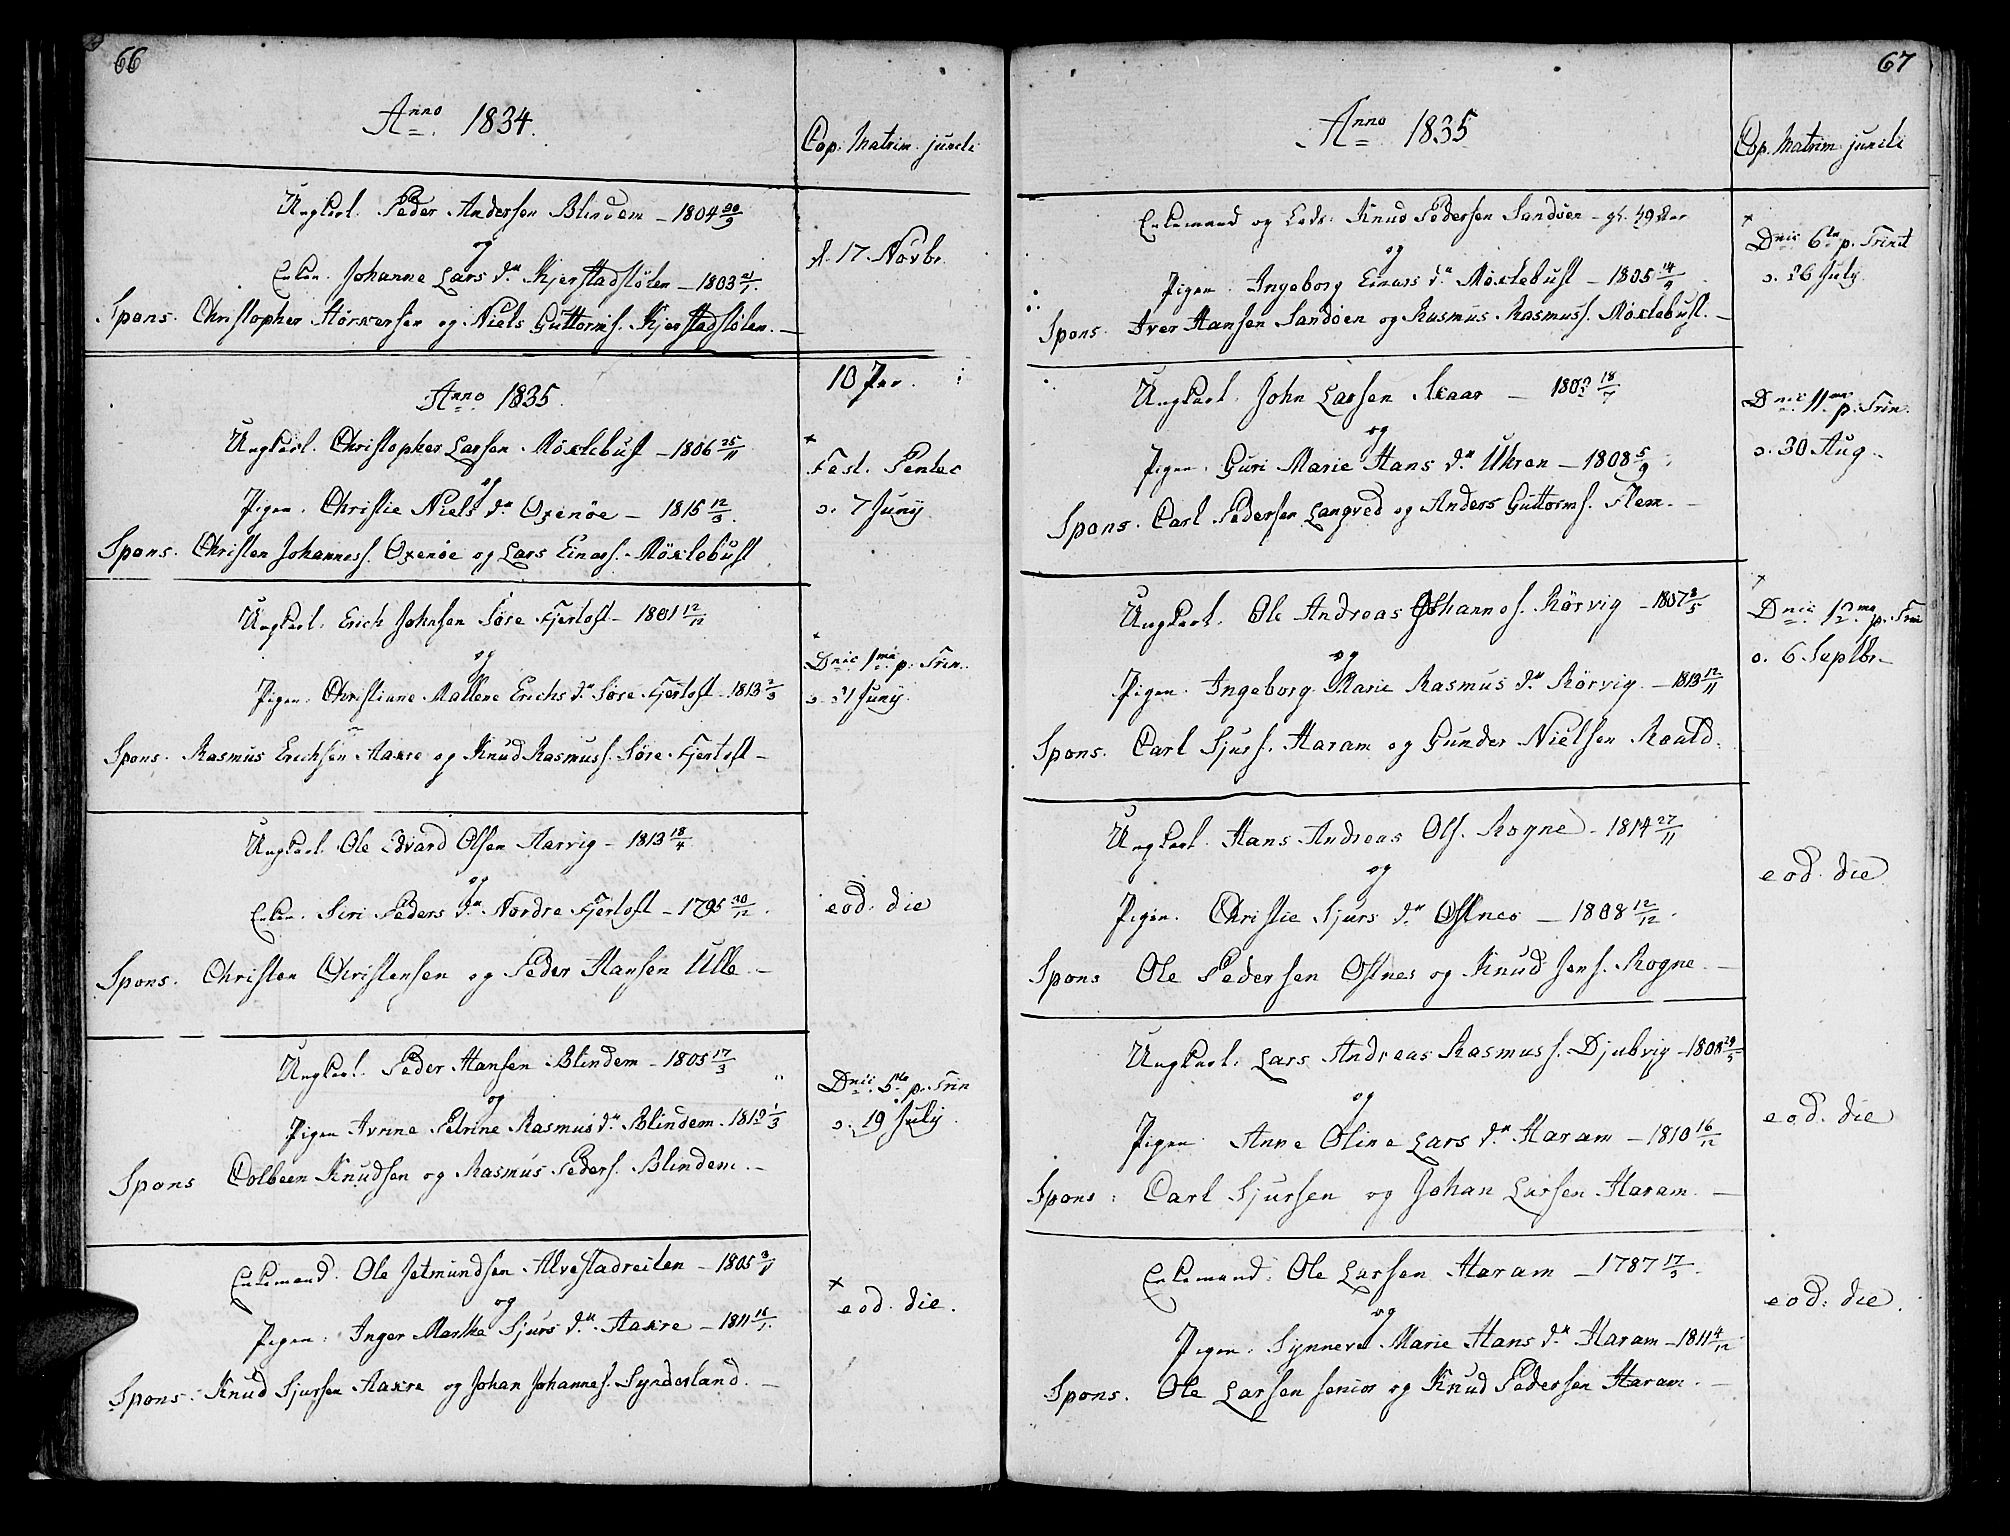 66
Anno 1834.
Cop. Matrim. juncti
Ungkarl. Peder Andersen Blindem - 1804 20/9
og
Enken. Johanne Lars d.r Kjerstadstölen - 1803 21/1.
Spons. Christopher Störkersen og Niels Guttorms. Kjerstadstölen.
d. 17 Novbr.
Anno 1835.
10 Par.
Ungkarl. Christopher Larsen Möklebust - 1806 25/11
og
Pigen. Christie Niels d.r Oxenöe - 1815 12/3.
Spons. Christen Johanness. Oxenöe og Lars Einars. Möklebust
Fest. Pentec
d. 7 Juny.
Ungkarl. Erich Johnsen Söre Fjertoft - 1801 12/12
og
Pigen. Christiane Mallene Erichs d.r Söre Fjertoft - 1813 2/3
Spons. Rasmus Erichsen Aakre og Knud Rasmuss. Söre Fjertoft -
Dnic 1ma p. Trin.
d. 21 Juny.
Ungkarl. Ole Edvard Olsen Aarvig - 1813 18/4
og
Enken. Siri Peders d.r Nordre Fjertoft - 1795 30/12.
Spons. Christen Christensen og Peder Hansen Ulle.
eod. die
Ungkarl. Peder Hansen Blindem - 1805 17/3
og
Pigen Ivrine Petrine Rasmus d.r Blindem. 1812 1/3
Spons Colbeen Knudsen og Rasmus Peders. Blindem.
Dnic. 5ta p. Trin
d. 19 July.
Enkemand. Ole Jetmundsen Alvestadreiten - 1805 3/11
og
Pigen. Inger Martha Sjurs d.r Aakre - 1811 18/1.
Spons. Knud Sjursen Aakre og Johan Johannes. Synderland.
eod. die.
67
Anno 1835
Cop. Matrim. juncti
Enkemand og Leds. Knud Pedersen Sandöen - gl. 49 Aar
og
Pigen. Ingeborg Einars d.r Möklebust - 1805 14/9
Spons. Iver Hansen Sandöen og Rasmus Rasmuss. Möklebust.
Dnic 6ta p. Trinit
d. 26 July.
Ungkarl. John Larsen Skaar - 1803 18/7
og
Pigen. Guri Marie Hans d.r Ukren - 1808 5/9
Spons. Carl Pedersen Langved og Anders Guttorms. Flem.
Dnic. 11ma p. Trin.
d. 30 Aug.
Ungkarl. Ole Andreas Johannes. Rörvig - 1807 8/5
og
Pigen. Ingeborg Marie Rasmus d.r Rörvig. - 1813 12/11
Spons. Carl Sjurs. Haram og Gunder Nielsen Roald.
Dnic 12ma p. Trin
d. 6 Septbr.
Ungkarl. Hans Andreas Ols. Rogne - 1814 27/11
og
Pigen. Christie Sjurs d.r Ostnes - 1808 12/12.
Spons Ole Pedersen Ostnes og Knud Jens. Rogne.
eod. die
Ungkarl. Lars Andreas Rasmuss. Djubvig - 1808 29/5
og
Pigen Anne Oline Lars d.r Haram - 1810 16/12
Spons: Carl Sjursen og Johan Larsen Haram.
eod. die
Enkemand. Ole Larsen Haram - 1787 17/5.
og
Pigen. Synneva Marie Hans d.r Haram - 1811 4/12
Spons. Ole Larsen senior og Knud Pedersen Haram.
eod. die.